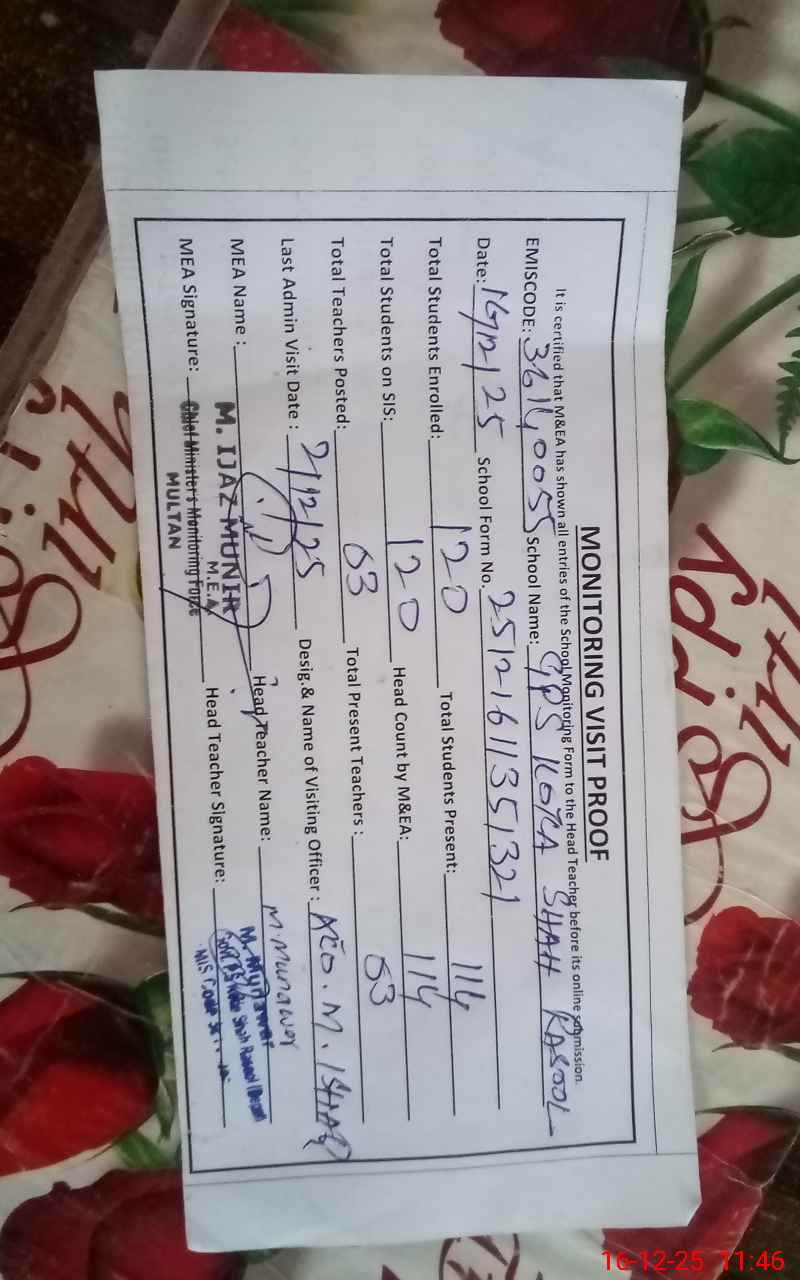 MONITORING VISIT PROOF
It is certified that M&EA has shown all entries of the School Monitoring Form to the Head Teacher before its online submission.
EMISCODE: 36140055 School Name: GPS KOTLA SHAH RASOOL
Date: 16/12/25 School Form No. 25121611351321
Total Students Enrolled: 120 Total Students Present: 114
Total Students on SIS: 120 Head Count by M&EA: 114
Total Teachers Posted: 03 Total Present Teachers: 03
Last Admin Visit Date: 2/12/25 Desig.& Name of Visiting Officer: AEO. M. ISHAQ
MEA Name: M. IJAZ MUNIR Head Teacher Name: M. Munawer
M.E.A
MEA Signature: Chief Minister's Monitoring Force Head Teacher Signature: M. Munawar
MULTAN
16-12-25 11:46